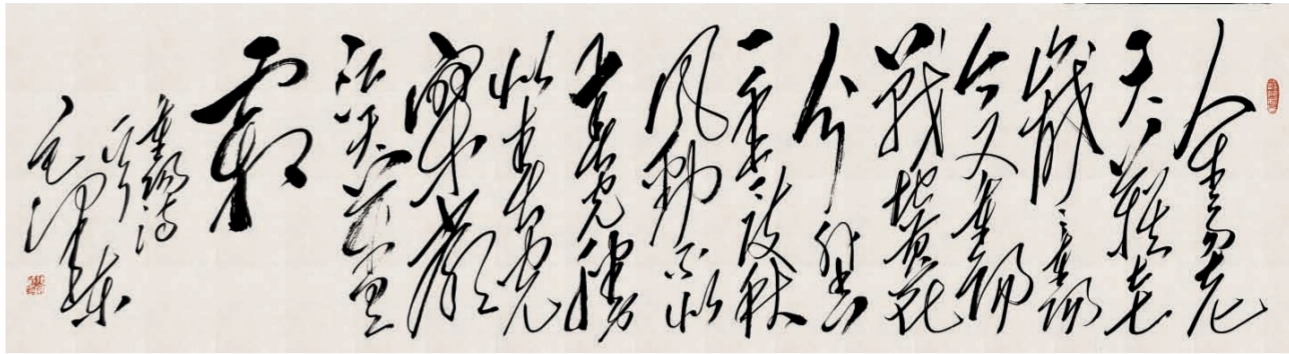 人生易老
天難老
歲歲重陽
今又重陽
戰地黃花
分外香
一年一度秋
風勁不似
春光勝
似春光
寥廓
江天萬里
霜
重陽詩
毛澤東